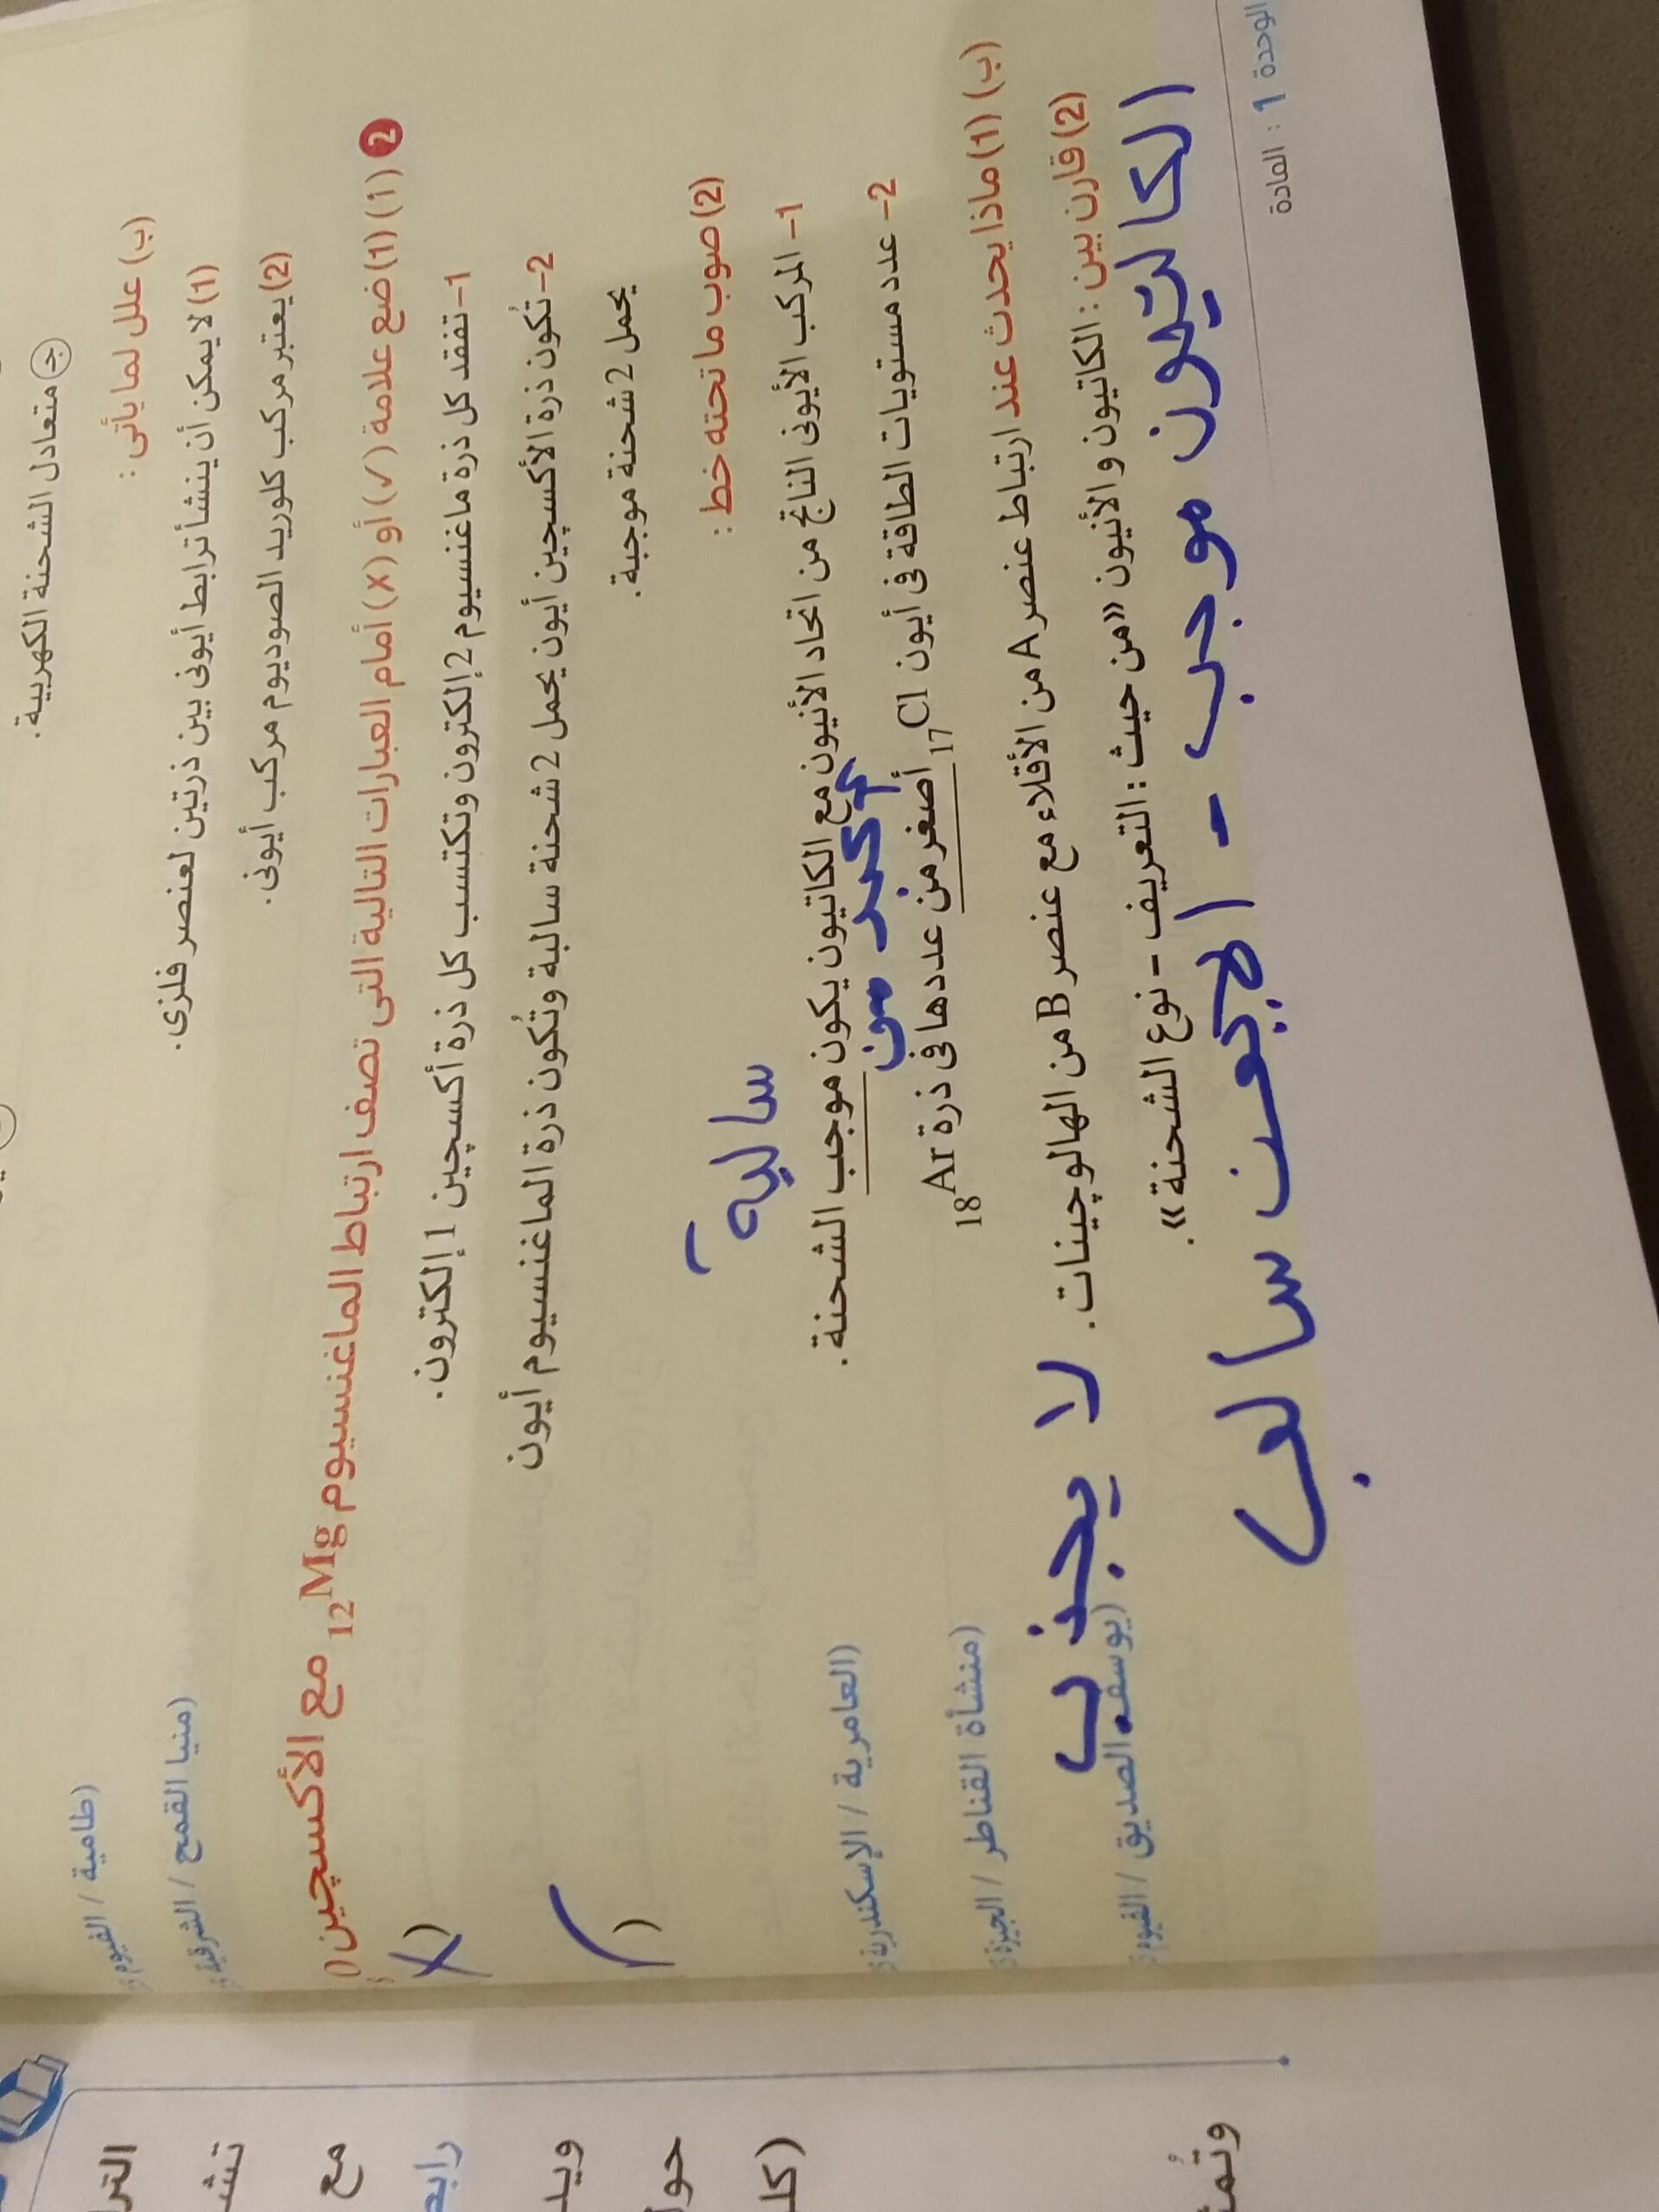 ج متعادل الشحنة الكهربية.
(ب) علل لما يأتى :
(1) لا يمكن أن ينشأ ترابط أيونى بين ذرتين لعنصر فلزى. (طامية / الفيوم)
(2) يعتبر مركب كلوريد الصوديوم مركب أيونى. (منيا القمح / الشرقية)
2 (أ) (1) ضع علامة (✓) أو (x) أمام العبارات التالية التى تصف ارتباط الماغنسيوم 12Mg مع الأكسچين
1- تفقد كل ذرة ماغنسيوم 2 إلكترون وتكتسب كل ذرة أكسچين 1 إلكترون. (X
2- تُكون ذرة الأكسچين أيون يحمل 2 شحنة سالبة وتُكون ذرة الماغنسيوم أيون
يحمل 2 شحنة موجبة. (
(2) صوب ما تحته خط :
سالبة
1- المركب الأيونى الناتج من اتحاد الأنيون مع الكاتيون يكون موجب الشحنة.
أكبر من
2- عدد مستويات الطاقة فى أيون 17Cl أصغر من عددها فى ذرة 18Ar (العامرية / الإسكندرية)
(ب) (1) ماذا يحدث عند ارتباط عنصر A من الأقلاء مع عنصر B من الهالوچينات. (منشأة القناطر / الجيزة)
لا يجذب
(2) قارن بين : الكاتيون و الأنيون «من حيث : التعريف – نوع الشحنة». (يوسف الصديق / الفيوم)
الكاتيون موجب - سالب
الوحدة 1 : المادة
الترا
تش
مع
رابط
ويد
حوا
(كل
وتُمث